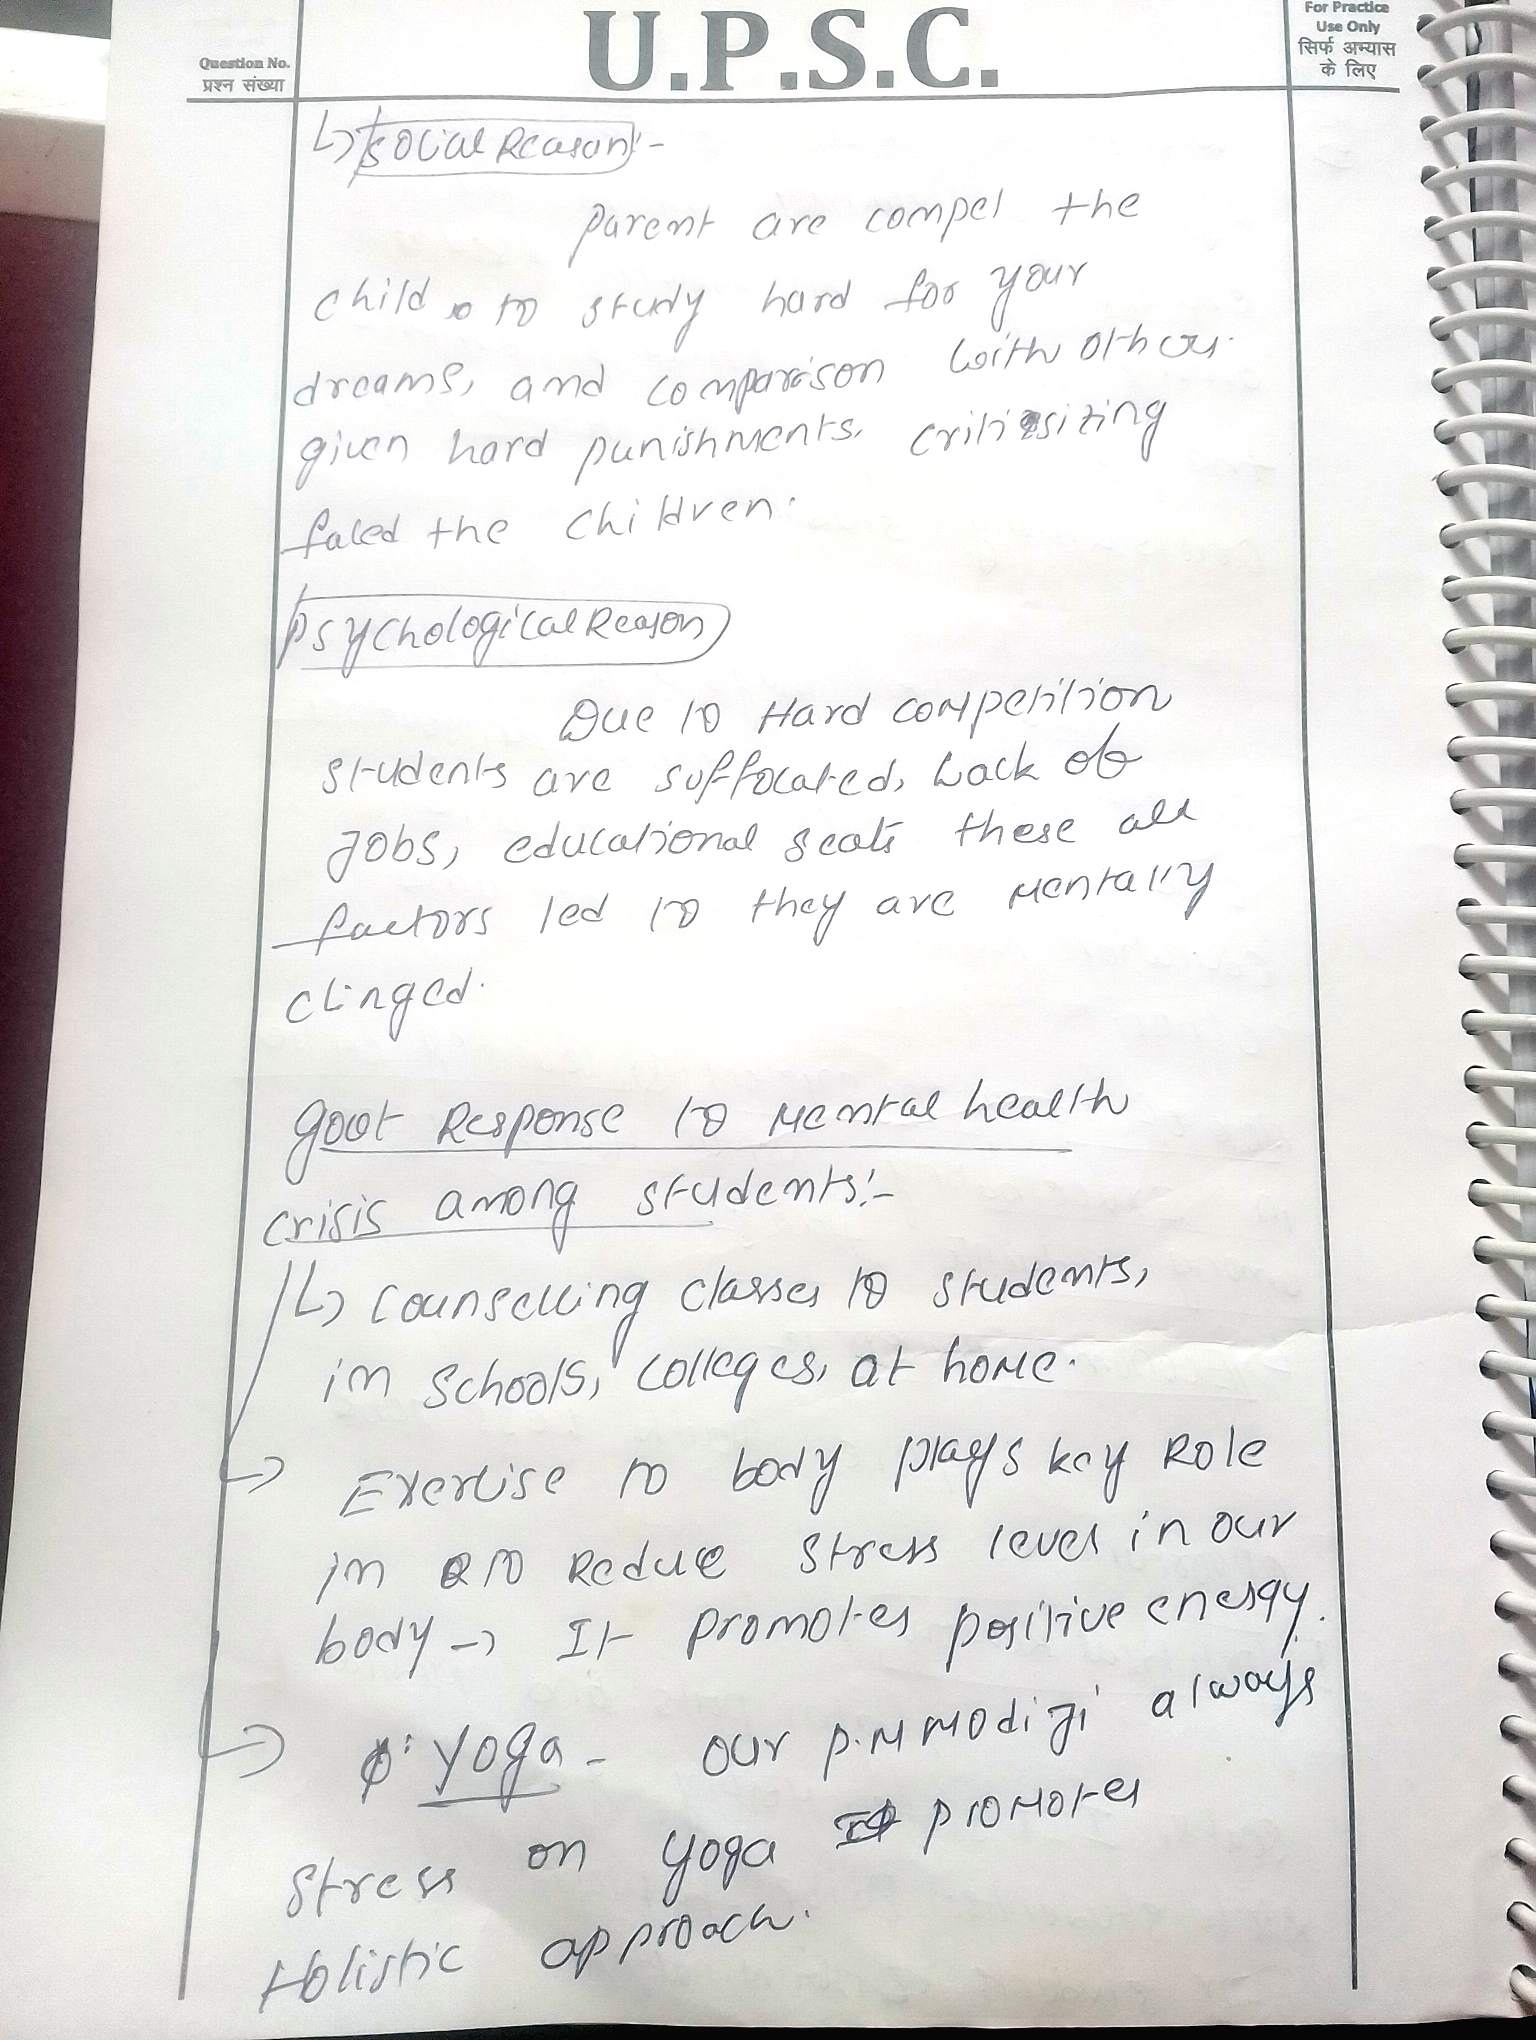 U.P.S.C.
Question No.
प्रश्न संख्या
For Practice
Use Only
सिर्फ अभ्यास
के लिए
↳ Social Reason:-
Parent are compel the
child to study hard for your
dreams, and comparison with others.
given hard punishments, 
faced the children.
Psychological Reason
Due to Hard competition
students are suffocated, Lack of
Jobs, educational seats these all
factors led to they are Mentally
clinged.
govt Response to Mental health
crisis among students:-
↳ Counselling classes to students,
in schools, colleges, at home.
→ Exercise to body plays key Role
in to Reduce stress level in our
body → It promotes positive energy.
→ Yoga - our P.M Modi ji always
stress on yoga promotes
Holistic approach.